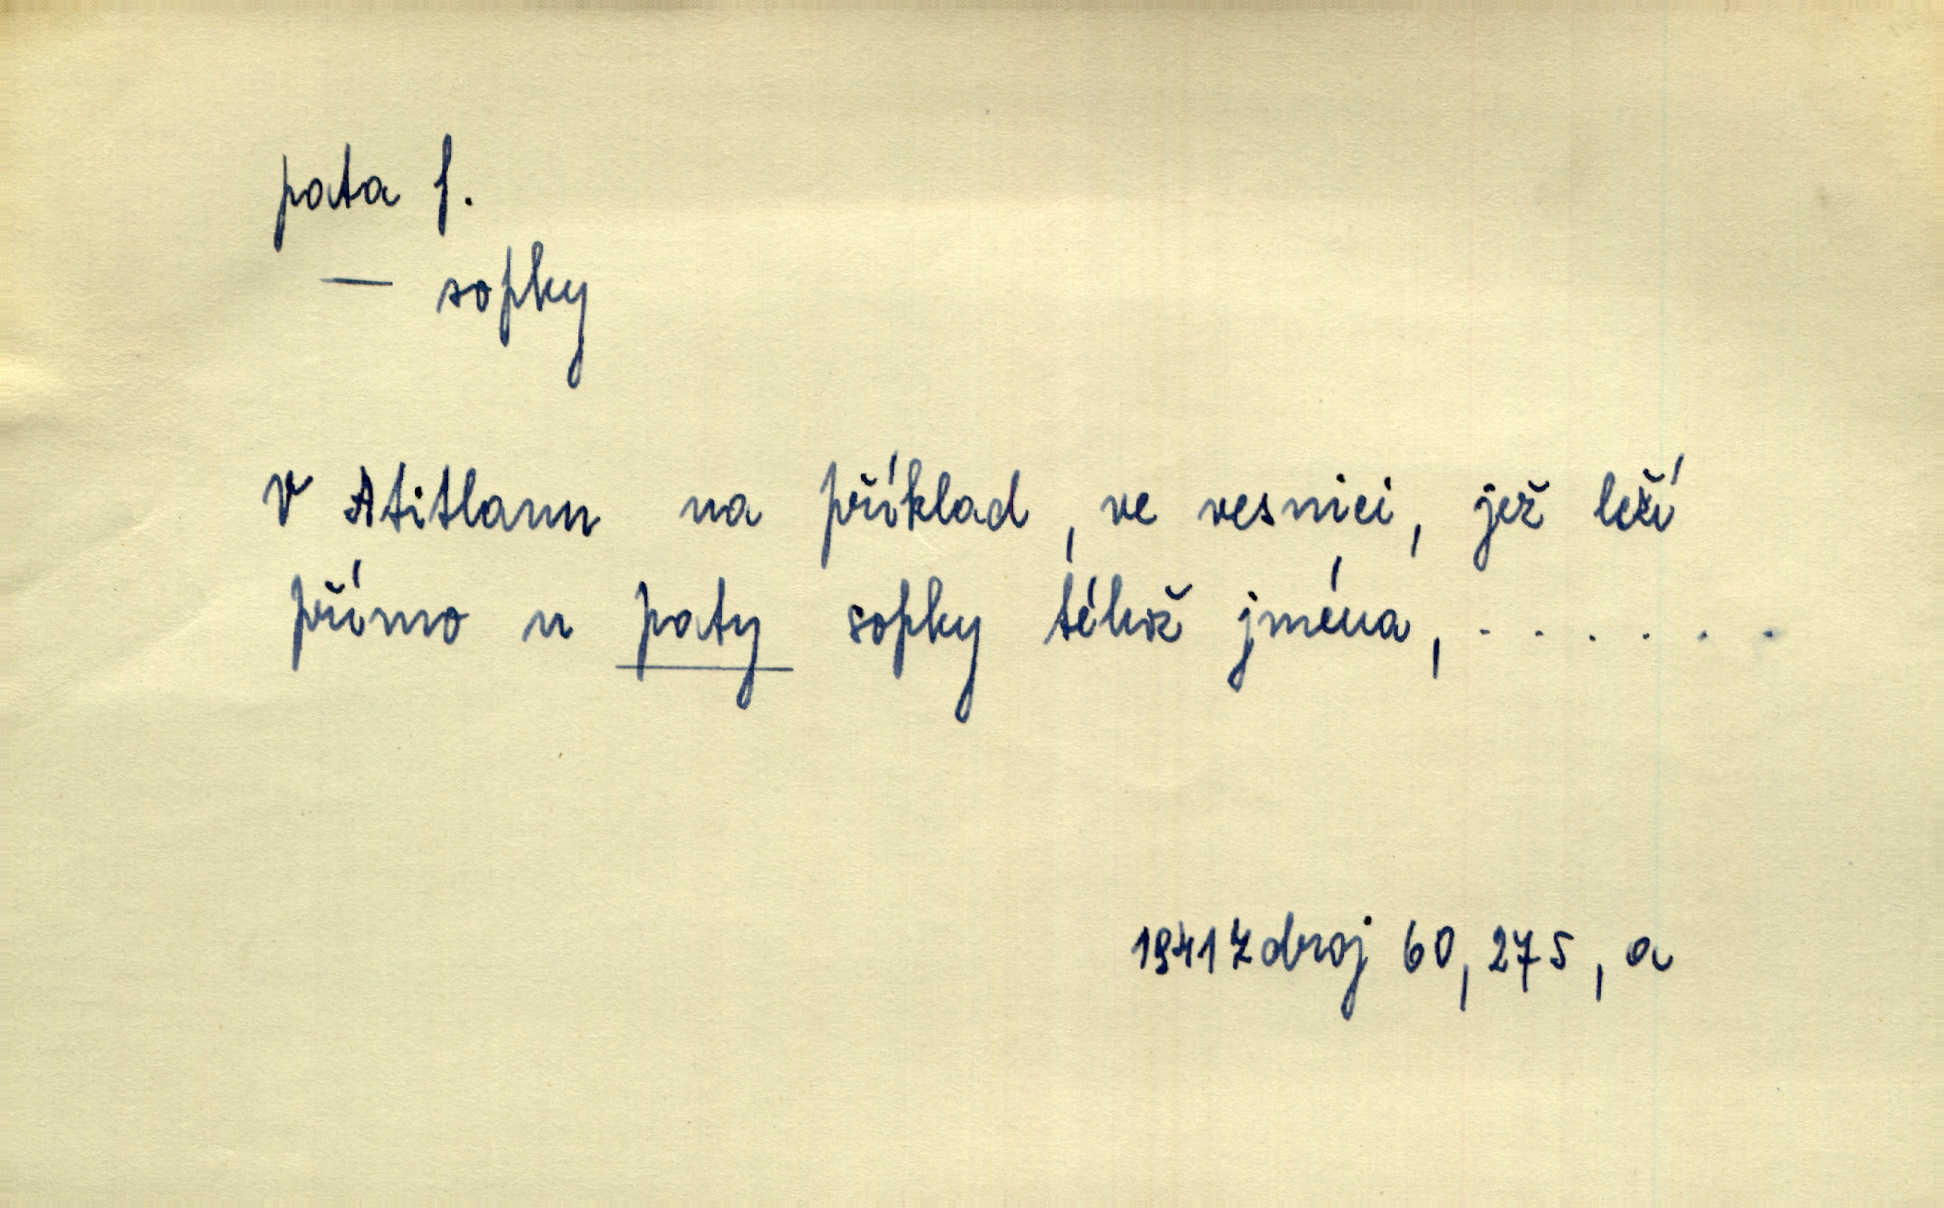 pata f.
— sopky
V Atitlanu na příklad, ve vesnici, jež leží
přímo u paty sopky téhož jména, . . . . . .
1941 Zdroj 60, 275, a